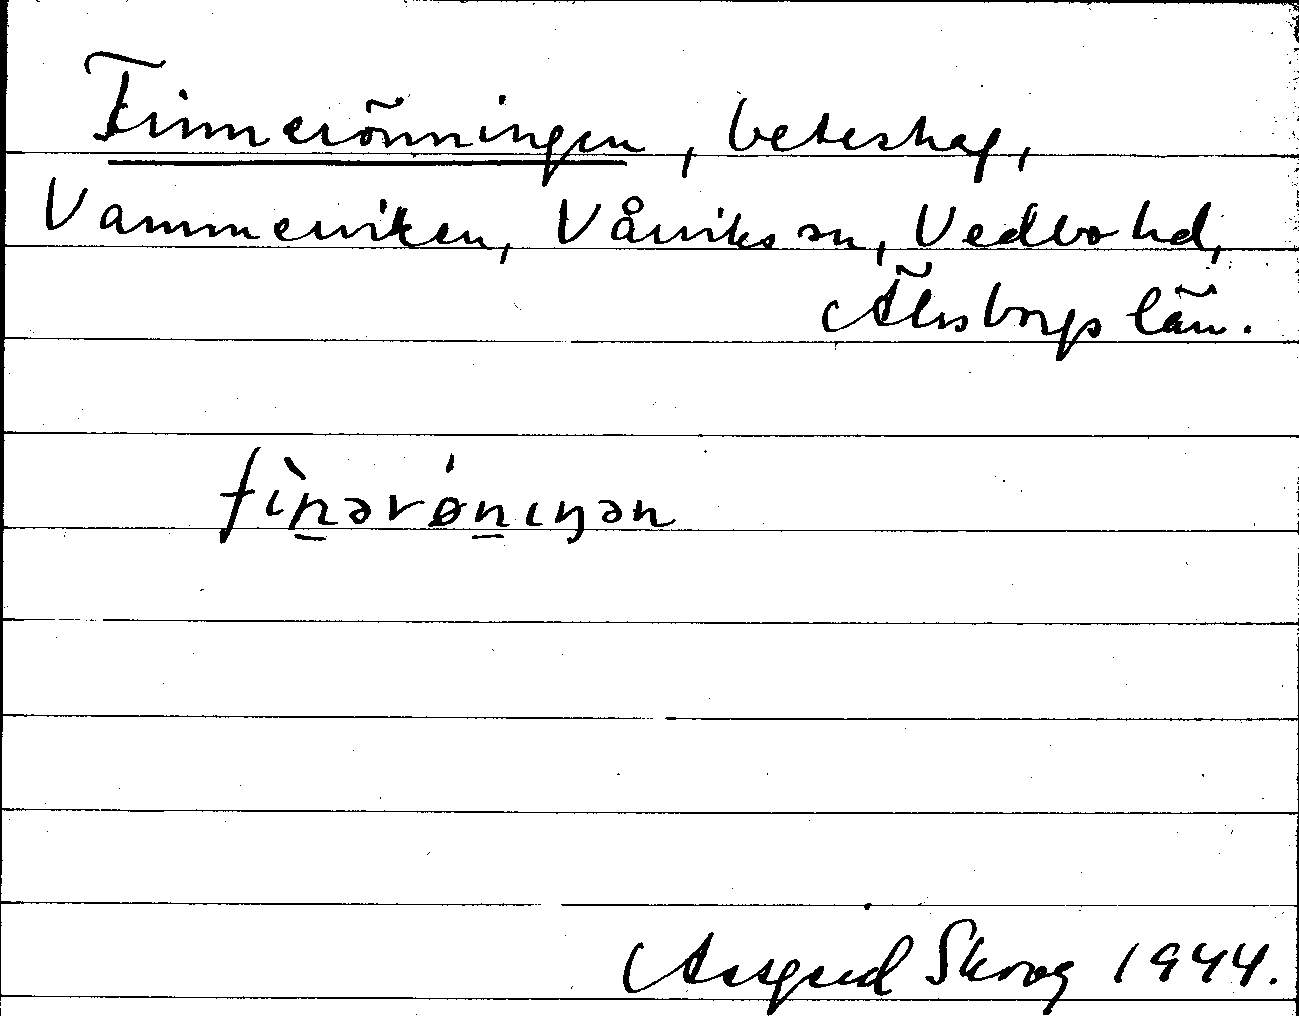 Finnerönningen, beteshag,
Vammerviken, Vårviks sn, Vedbo hd,
Älvsborgs län.
fìn̠ərǿn̠ıŋən
Assgerd Skoog 1944.